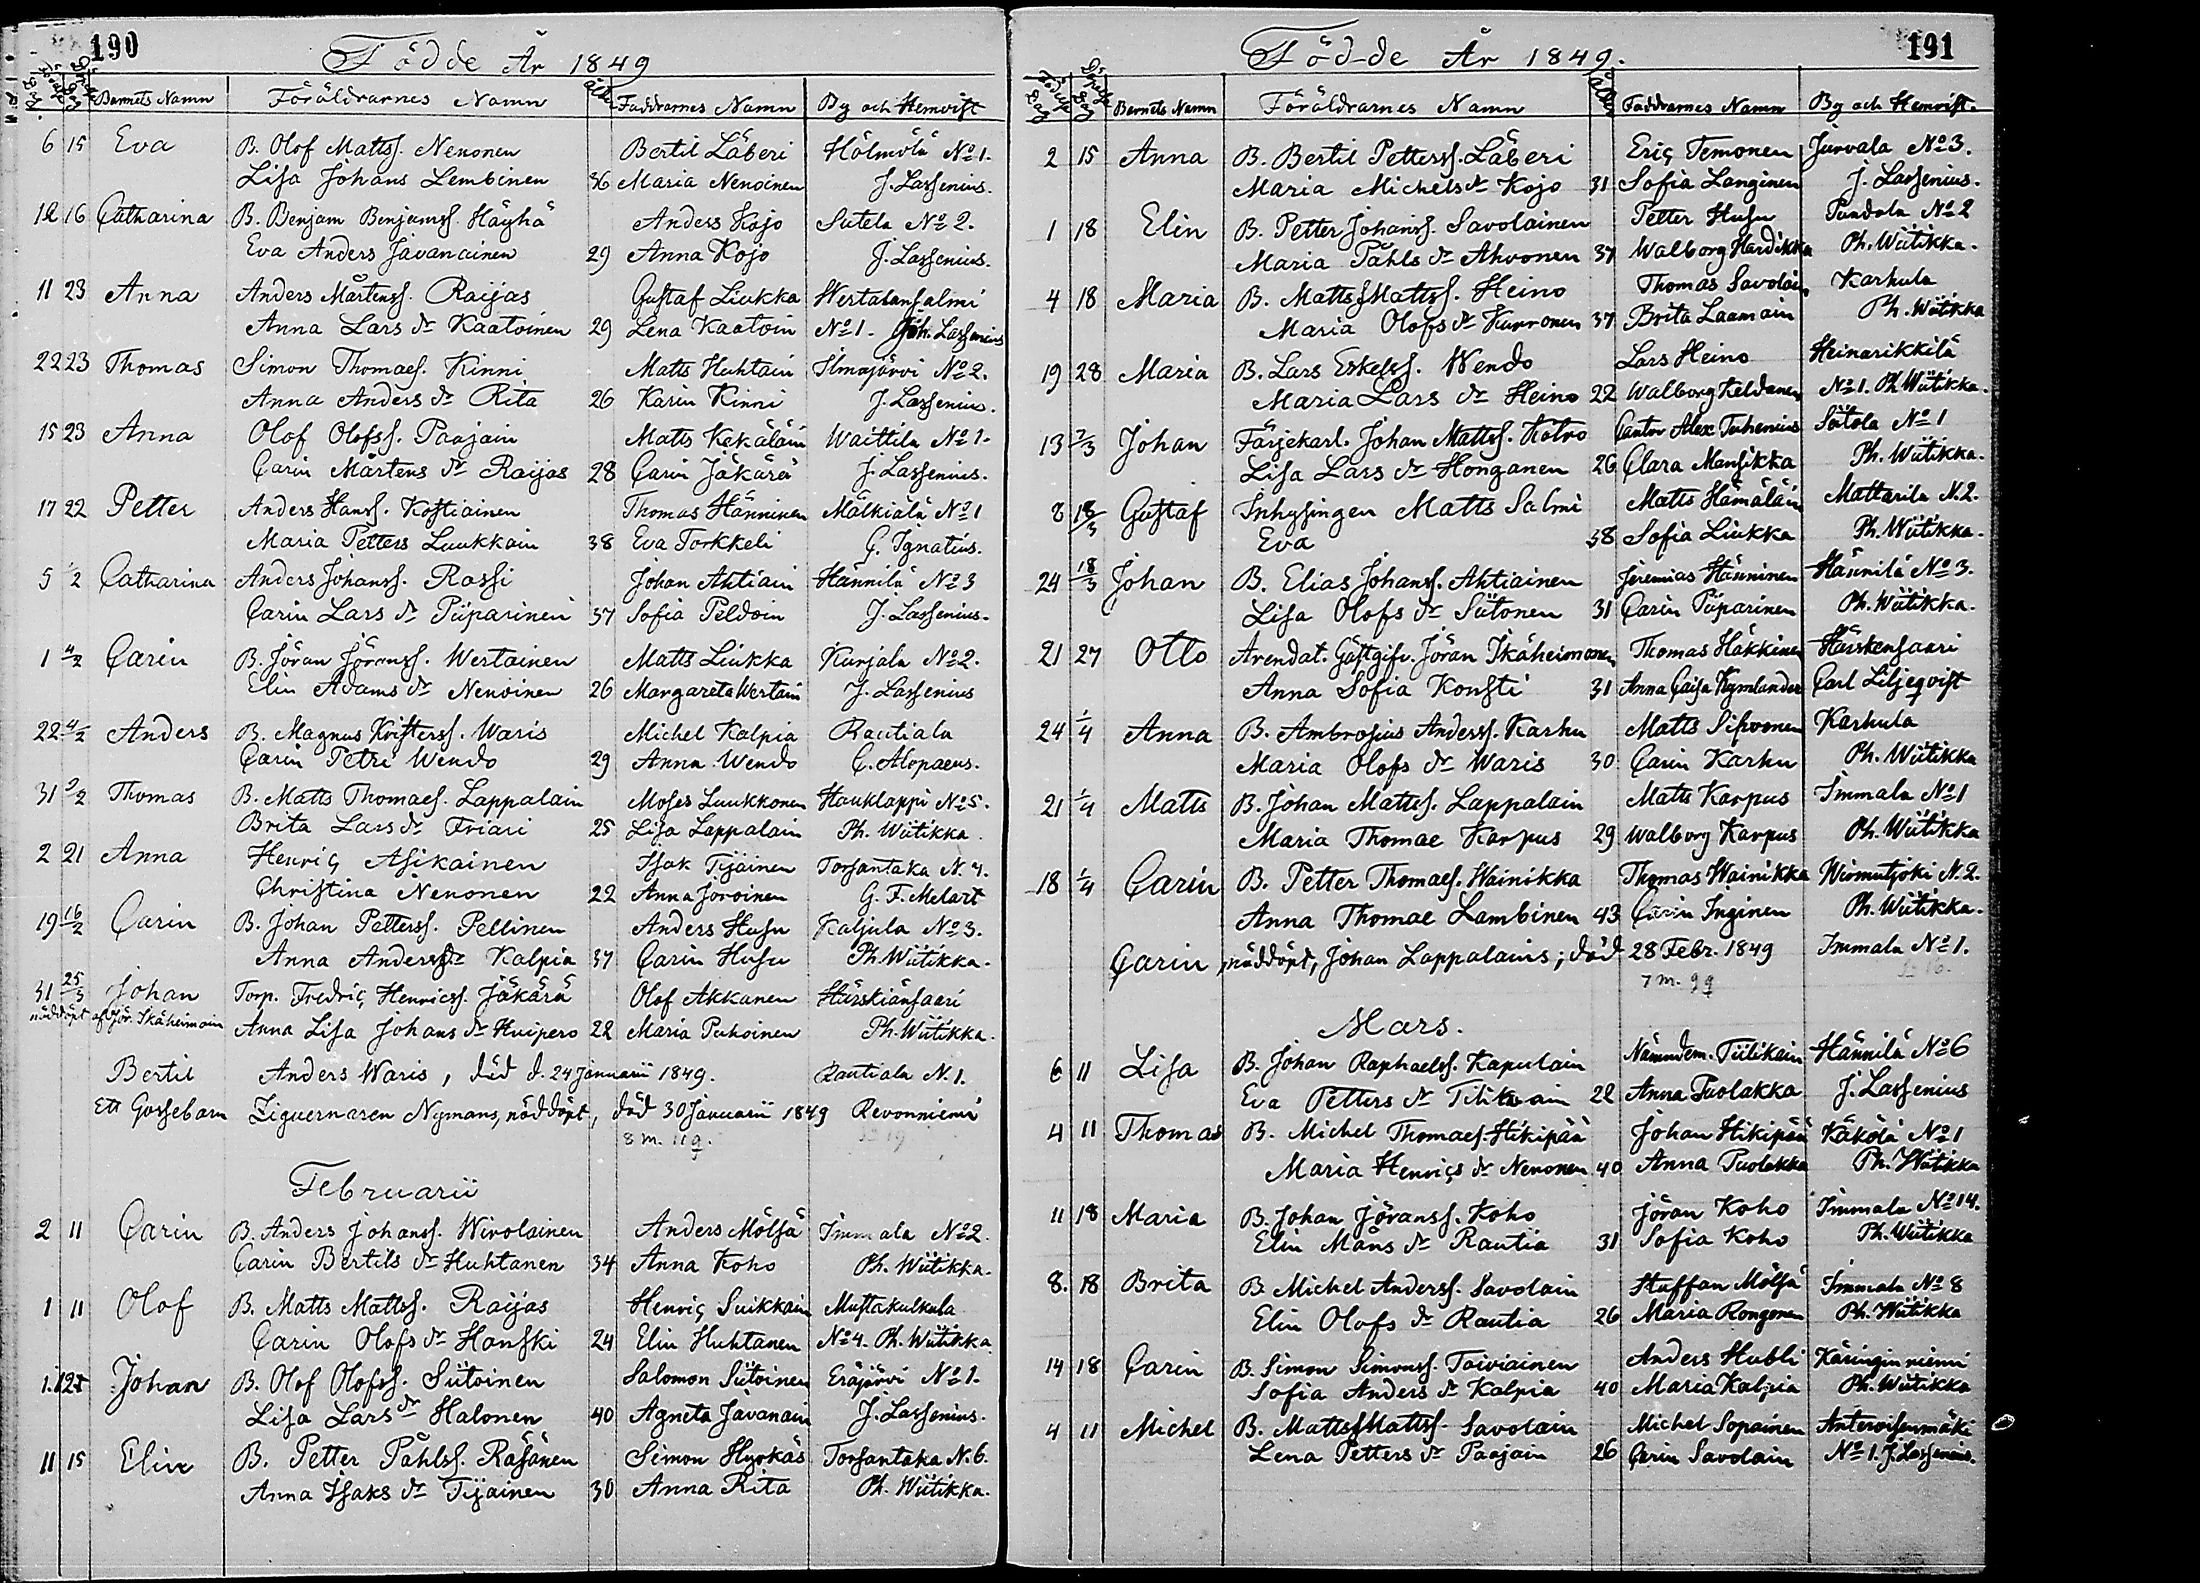 190
Födde År 1849
Födelse Dag | Döpelse Dag | Barnets Namn | Föräldrarnes Namn | ålder | Faddrarnes Namn | By och Hemvist
6 15 Eva B. Olof Mattsſ. Nenonen Bertil Läberi Hölmölä No 1.
Lisa Johans Lembinen 36 Maria Nenoinen J. Lassenius.
12 16 Catharina B. Benjam Benjamsſ. Häyhä Anders Kojo Sutela No 2.
Eva Anders Javanainen 29 Anna Kojo J. Lassenius.
11 23 Anna Anders Mårtensſ. Raijas Gustaf Liukka Wertalansalmi
Anna Lars dr Kaatoinen 29 Lena Kaatoin No 1. Joh. Lassenius
22 23 Thomas Simon Thomaeſ. Kinni Matts Huhtain Ilmajärvi No 2.
Anna Anders dr Rita 26 Karin Kinni J. Lassenius.
15 23 Anna Olof Olofsſ. Paajain Matts Kekäläin Waittila No 1.
Carin Mårtens dr Raijas 28 Carin Jäkärä J. Lassenius.
17 22 Petter Anders Hansſ. Kostiainen Thomas Hänninen Mälkiälä No 1
Maria Petters Luukkain 38 Eva Torkkeli G. Ignatius.
5 1/2 Catharina Anders Johansſ. Rossi Johan Ahtiain Hännilä No 3
Carin Lars dr Piiparinen 37 Sofia Peldoin J. Lassenius.
1 4/2 Carin B. Jöran Jöransſ. Wertainen Matts Liukka Kurjala No 2.
Elin Adams dr Nenoinen 26 Margareta Wertain J. Lassenius
22 4/2 Anders B. Magnus Kristersſ. Waris Michel Kalpia Rautiala
Carin Petri Wendo 29 Anna Wendo C. Alopaeus.
31 3/2 Thomas B. Matts Thomaeſ. Lappalain Moses Luukkonen Hauklappi No 5.
Brita Lars dr Friari 25 Lisa Lappalain Ph. Wiitikka.
2 21 Anna Henriç Asikainen Isak Tijainen Torsantaka N. 4.
Christina Nenonen 22 Anna Joroinen G. F. Melart
19 16/2 Carin B. Johan Pettersſ. Pellinen Anders Husu Kaljula No 3.
Anna Anders dr Kalpia 37 Carin Husu Ph. Wiitikka.
31 25/3 Johan Torp. Fredriç Henricsſ. Jäkärä Olof Akkanen Härskiänsaari
nöddöpt af Jör. Ikäheimoin Anna Lisa Johans dr Huipero 22 Maria Puhoinen Ph. Wiitikka.
Bertil Anders Waris, död d. 24 Januarii 1849. Rautiala N. 1.
Ett Gossebarn Ziguernaren Nymans, nöddöpt, död 30 Januarii 1849 Revonniemi
8 m. 11 q.
Februarii
2 11 Carin B. Anders Johansſ. Wirolainen Anders Mölsä Immala No 2.
Carin Bertils dr Huhtanen 34 Anna Koho Ph. Wiitikka.
1 11 Olof B. Matts Mattsſ. Raijas Henriç Suikkain Mustakulkula
Carin Olofs dr Hanski 24 Elin Huhtanen No 4. Ph. Wiitikka
Johan B. Olof Olofsſ. Siitoinen Salomon Siitoinen Eräjärvi No 1.
Lisa Lars dr Halonen 40 Agneta Javanain J. Lassenius.
11 15 Elin B. Petter Påhlsſ. Räsänen Simon Hyrkäs Torsantaka N. 6.
Anna Isaks dr Tijainen 30 Anna Rita Ph. Wiitikka.
191
Född-de År 1849.
Födelse Dag | Döpelse Dag | Barnets Namn | Föräldrarnes Namn | ålder | Faddrarnes Namn | By och Hemvist.
2 15 Anna B. Bertil Pettersſ. Läberi Eriç Temonen Jurvala No 3.
Maria Michels dr Kojo 31 Sofia Langinen J. Lassenius.
1 18 Elin B. Petter Johansſ. Savolainen Petter Husu Pundola No 2
Maria Påhls dr Ahvonen 37 Walborg Hardikka Ph. Wiitikka.
4 18 Maria B. Matts Mattsſ. Heino Thomas Savolain Karhula
Maria Olofs dr Kurronen 37 Brita Laamain Ph. Wiitikka
19 28 Maria B. Lars Eskelsſ. Wendo Lars Heino Heinarikkilä
Maria Lars dr Heino 22 Walborg Keldanen No 1. Ph. Wiitikka.
13 2/3 Johan Färjekarl. Johan Mattsſ. Kotro Cantor Alex Tuhenius Siitola No 1
Lisa Lars dr Honganen 26 Clara Mansikka Ph. Wiitikka.
8 18/3 Gustaf Inhysingen Matts Salmi Matts Hämäläin Mattarila N. 2.
Eva 38 Sofia Liukka Ph. Wiitikka.
24 18/3 Johan B. Elias Johansſ. Ahtiainen Jeremias Hänninen Hännilä No 3.
Lisa Olofs dr Siitonen 31 Carin Piiparinen Ph. Wiitikka.
21 27 Otto Arendat. Gästgifv. Jöran Ikäheimonen Thomas Häkkinen Härskensaari
Anna Sofia Konsti 31 Anna Caisa Kymlander Carl Liljeqvist
24 1/4 Anna B. Ambrosius Andersſ. Karhu Matts Sihvonen Karhula
Maria Olofs dr Waris 30 Carin Karhu Ph. Wiitikka
21 1/4 Matts B. Johan Mattsſ. Lappalain Matts Karpus Immala No 1
Maria Thomae Karpus 29 Walborg Karpus Ph. Wiitikka
18 1/4 Carin B. Petter Thomaeſ. Wainikka Thomas Wainikka Wirmutjoki N. 2.
Anna Thomae Lambinen 43 Carin Inginen Ph. Wiitikka.
Carin, nöddöpt, Johan Lappalains; död 28 Febr. 1849 Immala No 1.
7 m. 9 q
Mars.
6 11 Lisa B. Johan Raphaelsſ. Kapulain Nämndem. Tiilikain Hännilä No 6
Eva Petters dr Tilikain 22 Anna Puolakka J. Lassenius
4 11 Thomas B. Michel Thomaeſ. Hikipää Johan Hikipää Käkölä No 1
Maria Henriçs dr Nenonen 40 Anna Puolakka Ph. Wiitikka
11 18 Maria B. Johan Jöransſ. Koho Jöran Koho Immala No 14.
Elin Måns dr Rautia 31 Sofia Koho Ph. Wiitikka
8. 18 Brita B. Michel Andersſ. Savolain Staffan Mölsä Immala No 8
Elin Olofs dr Rautia 26 Maria Rongonen Ph. Wiitikka
14 18 Carin B. Simon Simonsſ. Toiviainen Anders Hubli Käringinniemi
Sofia Anders dr Kalpia 40 Maria Kalpia Ph. Wiitikka
4 11 Michel B. Matts Mattsſ. Savolain Michel Sopainen Anteroisenmäki
Lena Petters dr Paajain 26 Carin Savolain No 1. J. Lassenius.